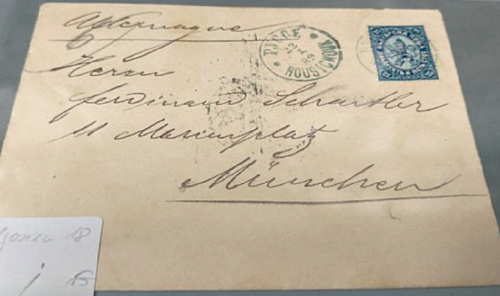 Allemagne
Herrn
Ferdinand Schartler
11 Marienplatz
München
ROUSTCHOUK
18